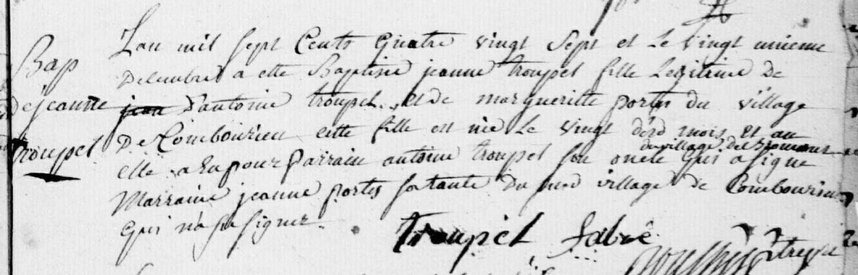 Bap
de jeanne
troupel
L'an mil sept Cents Quatre vingt sept et Le vingt unieme
Decembre a ette Baptisée jeanne troupel fille Legitime De
jean d'antoine troupel. et de margueritte portes du village
De Combourieu cette fille est née Le vingt dud mois et an
elle a eu pour Parrain antoine troupel son oncle du village de qui a signe
Marraine jeanne portes sa tante Du meme village de Combourieu
Qui n'a su signer.
troupel fabre